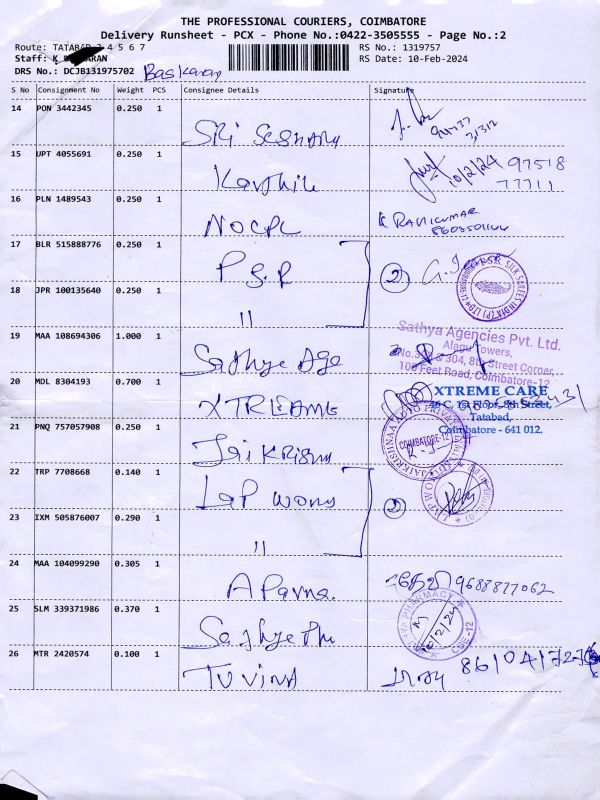 THE PROFESSIONAL COURIERS, COIMBATORE
Delivery Runsheet - PCX - Phone No.:0422-3505555 - Page No.:2
Route: TATABAD 3 4 5 6 7
RS No.: 1319757
Staff: K BASKARAN
RS Date: 10-Feb-2024
DRS No.: DCJB131975702 Baskaran
S No Consignment No Weight PCS Consignee Details Signature
14 PON 3442345 0.250 1
94437
31312
15 UPT 4055691 0.250 1
Karthik
10/2/24 97518
77711
16 PLN 1489543 0.250 1
NOCPL
K RAVIKUMAR
17 BLR 515888776 0.250 1
P S.R
2
18 JPR 100135640 0.250 1
"
19 MAA 108694306 1.000 1
Sathya Age
Sathya Agencies Pvt. Ltd.
Alagu Towers,
100 Feet Road, Coimbatore-12
20 MDL 8304193 0.700 1
XTREAME
XTREME CARE
Tatabad,
Coimbatore - 641 012.
21 PNQ 757057908 0.250 1
Jai Krishna
COIMBATORE-12
22 TRP 7708668 0.140 1
Lap World
2
23 IXM 505876007 0.290 1
"
24 MAA 104099290 0.305 1
Aparna.
9688877062
25 SLM 339371986 0.370 1
PHARMACY
10/2/24
CBE-12
26 MTR 2420574 0.100 1